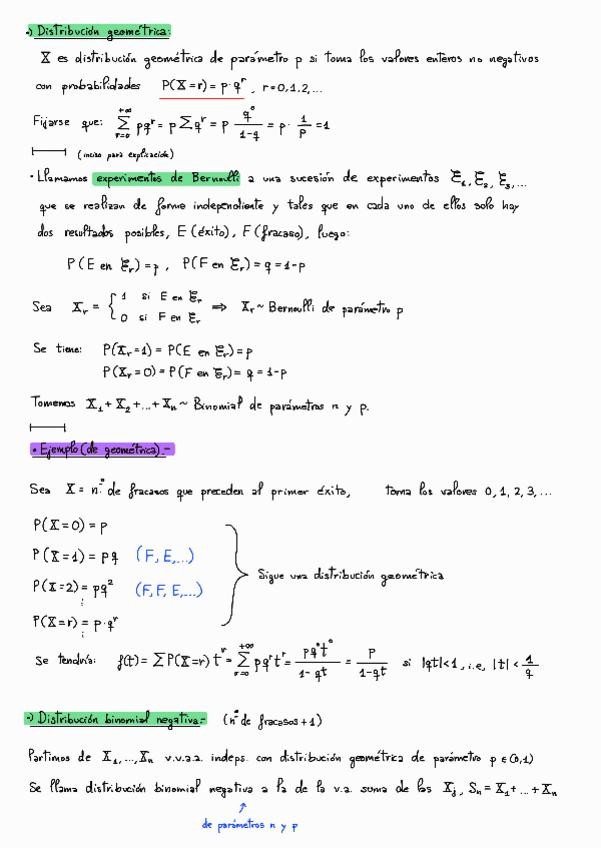 ·) Distribución geométrica:
X es distribución geométrica de parámetro p si toma los valores enteros no negativos
con probabilidades P(X=r) = p·q^r , r=0,1,2,...
Fijarse que: ∑_{r=0}^{+∞} pq^r = p ∑ q^r = p q^0/(1-q) = p · 1/p = 1
(inciso para explicación)
· Llamamos experimentos de Bernoulli a una sucesión de experimentos ξ_1, ξ_2, ξ_3, ...
que se realizan de forma independiente y tales que en cada uno de ellos solo hay
dos resultados posibles, E (éxito), F (fracaso), luego:
P(E en ξ_r) = p , P(F en ξ_r) = q = 1-p
Sea X_r = { 1 si E en ξ_r
0 si F en ξ_r ⇒ X_r ~ Bernoulli de parámetro p
Se tiene: P(X_r=1) = P(E en ξ_r) = p
P(X_r=0) = P(F en ξ_r) = q = 1-p
Tomemos X_1 + X_2 + ... + X_n ~ Binomial de parámetros n y p.
· Ejemplo (de geométrica).-
Sea X = n.º de fracasos que preceden al primer éxito, toma los valores 0, 1, 2, 3, ...
P(X=0) = p
P(X=1) = pq (F, E,...)
P(X=2) = pq^2 (F, F, E,...)
⋮
P(X=r) = p·q^r
⋮
Sigue una distribución geométrica
Se tendría: f(t) = ∑ P(X=r) t^r = ∑_{r=0}^{+∞} pq^r t^r = pq^0t^0/(1-qt) = p/(1-qt) si |qt|<1, i.e, |t| < 1/q
·) Distribución binomial negativa.- (nº de fracasos + 1)
Partimos de X_1, ..., X_n v.v.a.a. indeps. con distribución geométrica de parámetro p ∈ (0,1)
Se llama distribución binomial negativa a la de la v.a. suma de las X_j, S_n = X_1 + ... + X_n
↑
de parámetros n y p